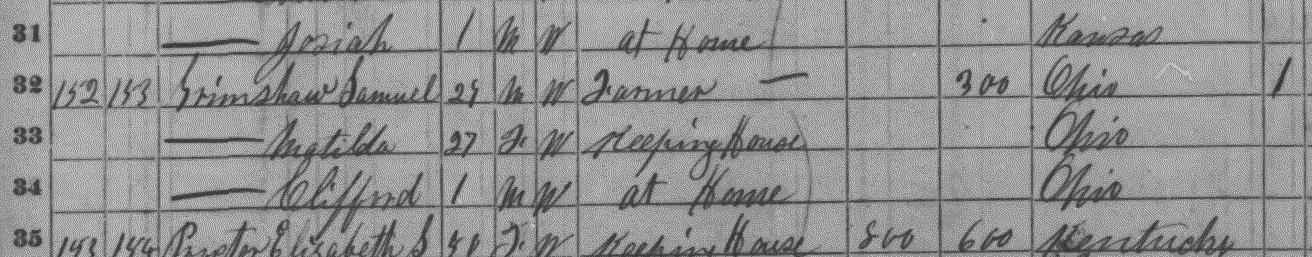 31 — Josiah 1 M W at Home Kansas
32 152 153 Grimshaw Samuel 29 M W Farmer — 300 Ohio 1
33 — Matilda 27 F W Keeping House Ohio
34 — Clifford 1 M W at Home Ohio
35 153 154 Elizabeth S F W Keeping House 800 600 Kentucky